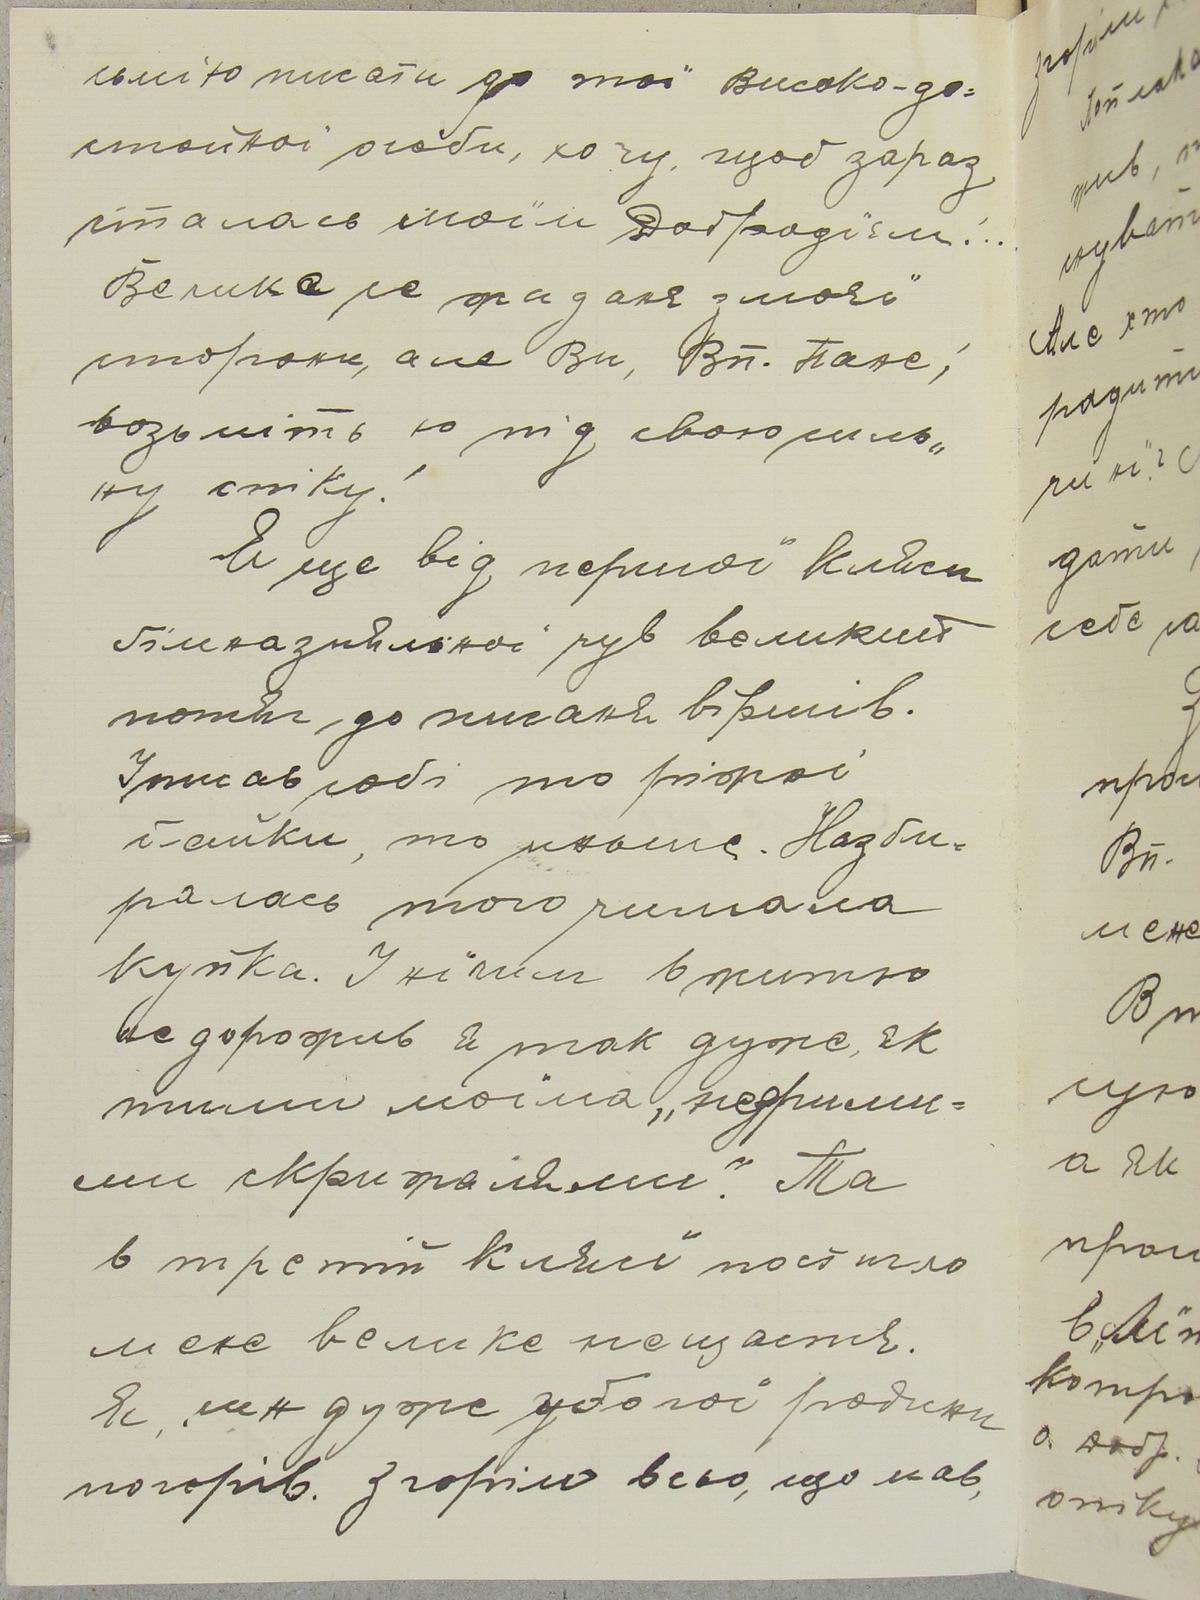 сьмію писати до тої високо-до=
стойної особи, хочу, щоб зараз
сталась моїм Добродїєм!...
Велике се жаданє з моєї
сторони, але Ви, Вп. Пане,!
возьміть ю під свою силь„
ну опіку!
Я ще від першої кляси
ґімназияльної чув великий
потяг до писаня віршів.
І писав собі то ріжні
байки, то иньше. Назби=
ралась того чимала
купка. І нїчим в житю
не дорожив я так дуже, як
тими моїма „недрими=
ми скрижалями". Та
в третій клясї постигло
мене велике нещастя.
Я, син дуже убогої родини
погорів. Згоріло всьо, що мав,
згоріли
Але хто
радити
дати
себе
Вп.
мене
В
а як
в
опіку